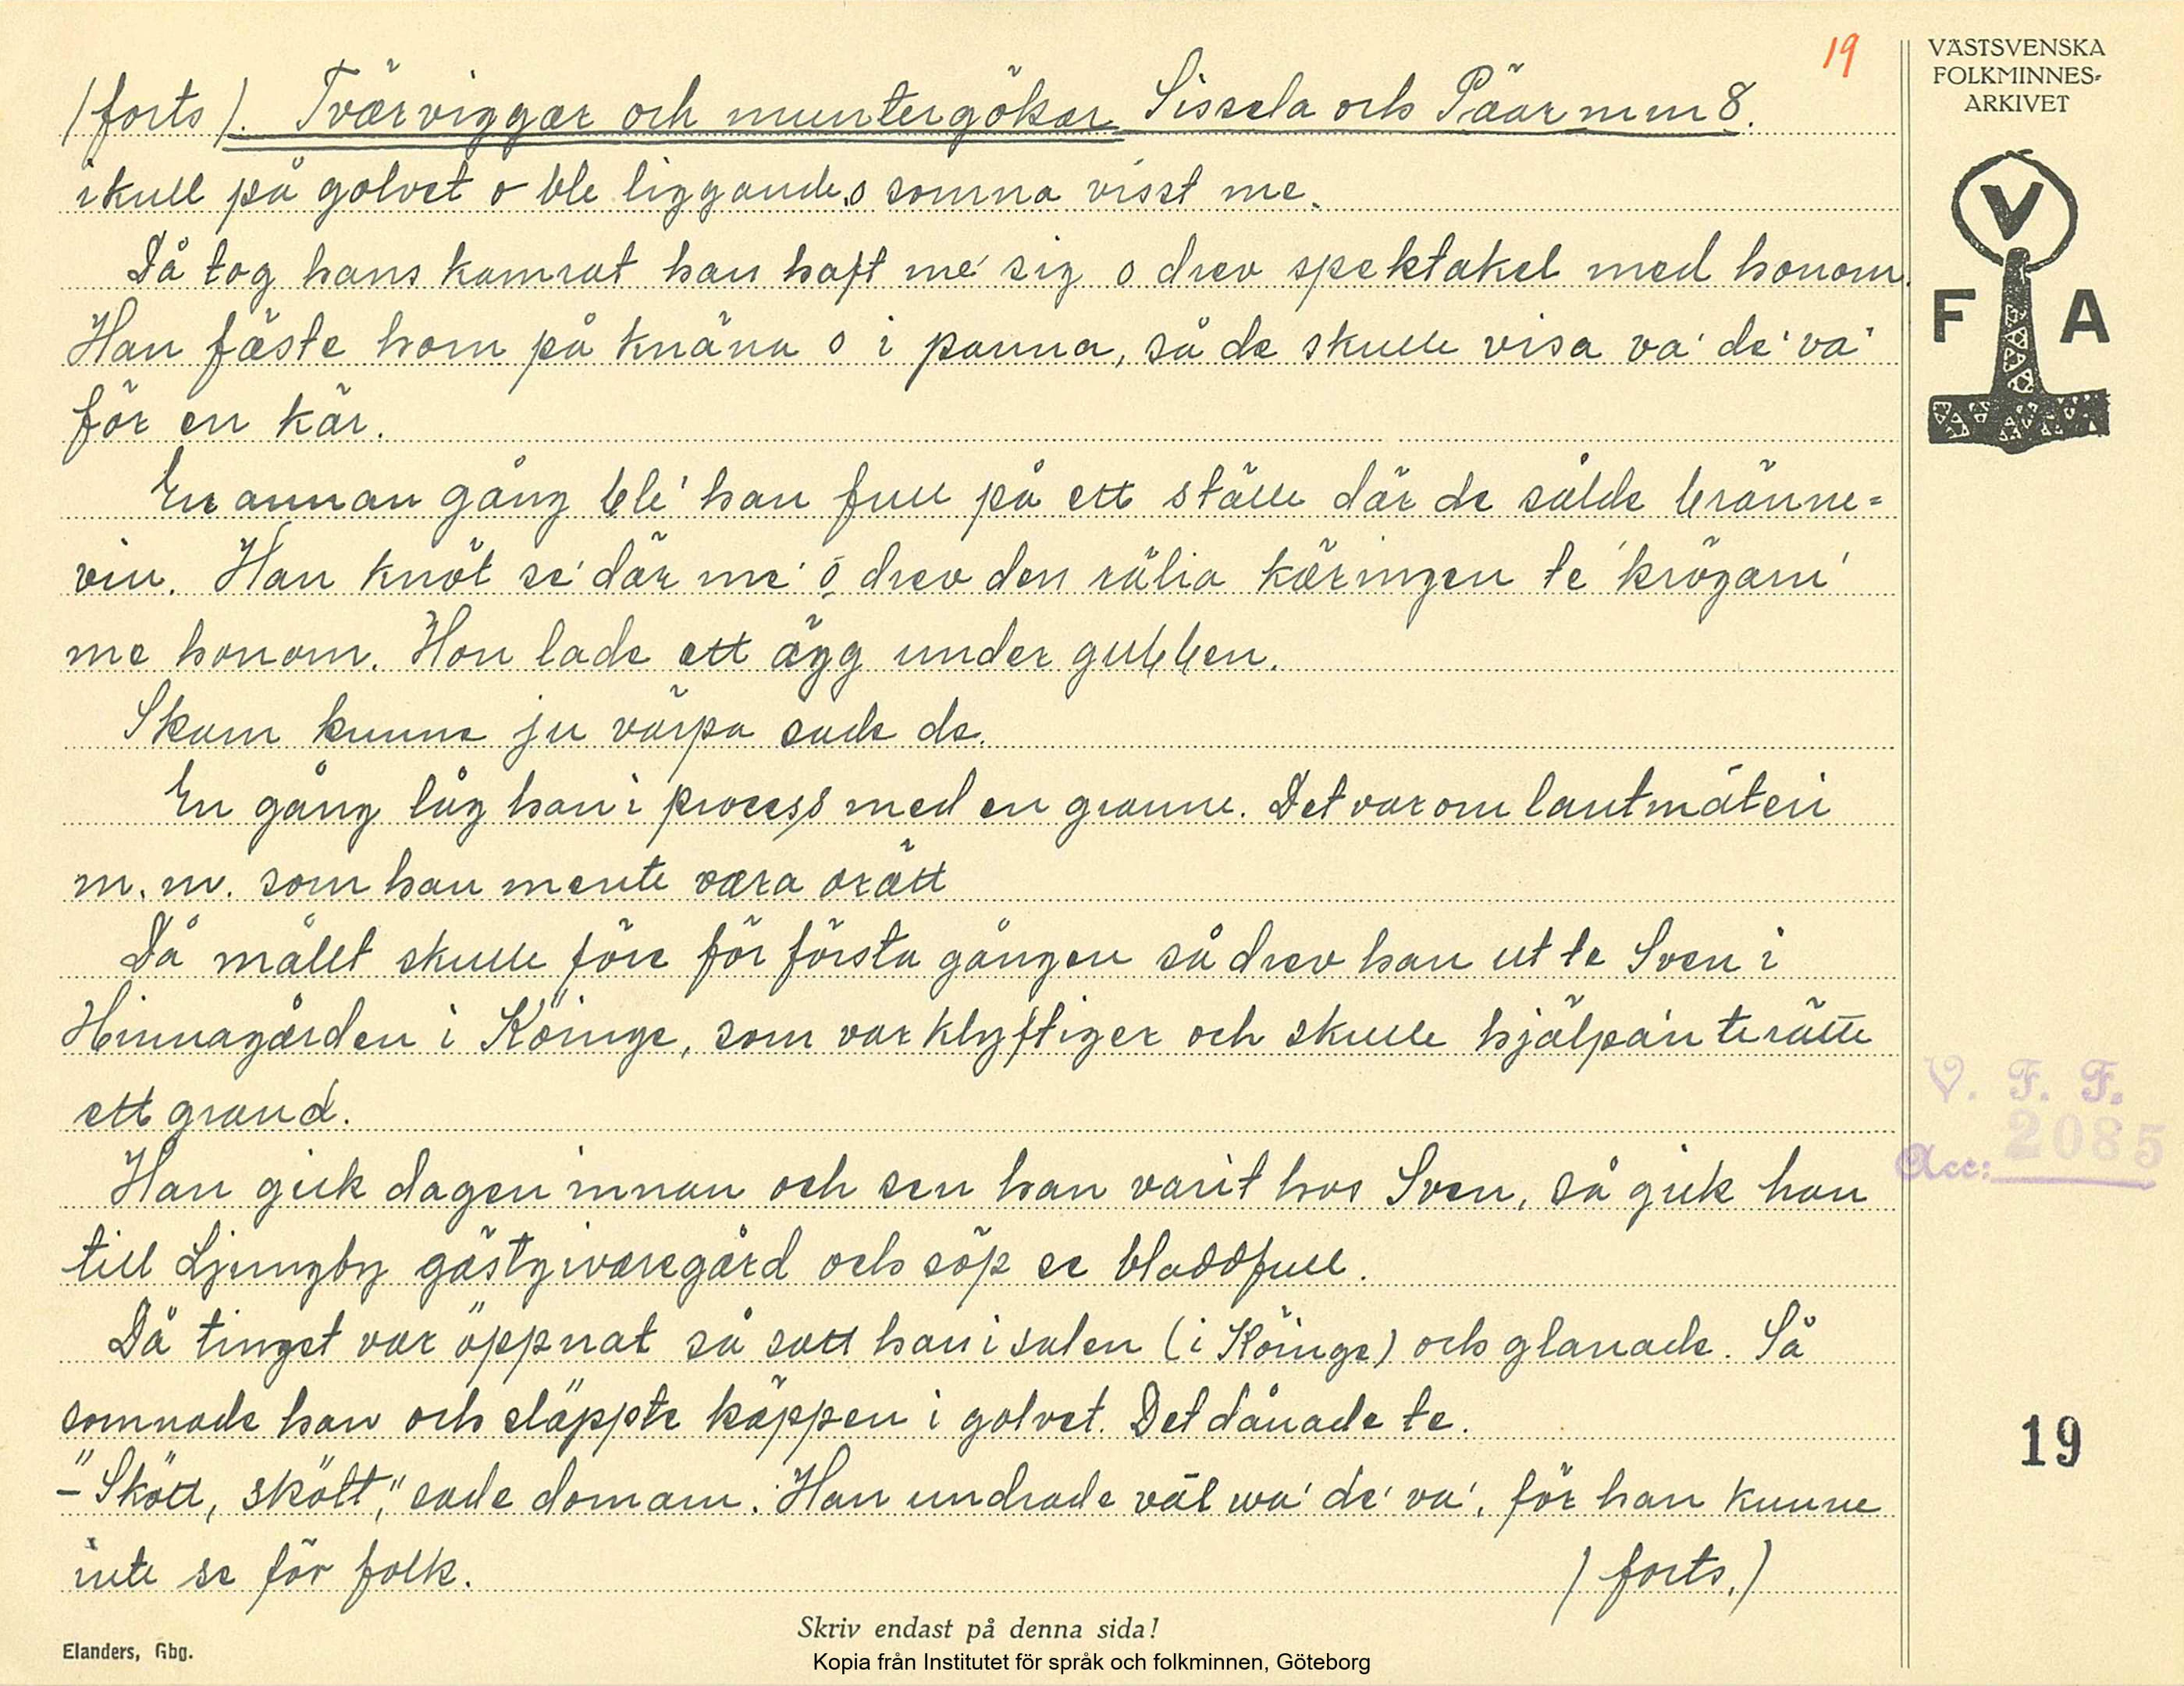 19
VÄSTSVENSKA
FOLKMINNES-
ARKIVET
V
F A
/forts/. Tværviggar och muntergökar Sissela och Päär m m 8.
ikull på golvet o ble liggande, o somna visst me.
Då tog hans kamrat han haft me' sig o drev spektakel med honom.
Han fäste horn på knäna o i panna, så de skulle visa va' de' va'
för en kär.
En annan gång ble' han full på ett ställe där de sålde bränne=
vin. Han knöt se' där me' o drev den rälia käringen te' krögarn'
me honom. Hon lade ett ägg under gubben.
Skam kunne ju värpa sade de.
En gång låg han i process med en granne. Det var om lantmäteri
m. m. som han mente væra orätt
Då målet skulle före för första gången så drev han ut te Sven i
Hinnagården i Köinge, som var klyftiger och skulle hjälpa'n te rätte
ett grand.
Han gick dagen innan och sen han varit hos Sven, så gick han
till Ljungby gästgivaregård och söp se bladdfull.
Då tinget var öppnat så satt han i salen (i Köinge) och glanade. Så
somnade han och släppte käppen i golvet. Det dånade te.
-"Skött, skött," sade domarn. Han undrade väl wa' de' va', för han kunne
inte se för folk.
/forts./
V. F. F.
2085
Acc:
19
Skriv endast på denna sida!
Elanders, Gbg.
Kopia från Institutet för språk och folkminnen, Göteborg